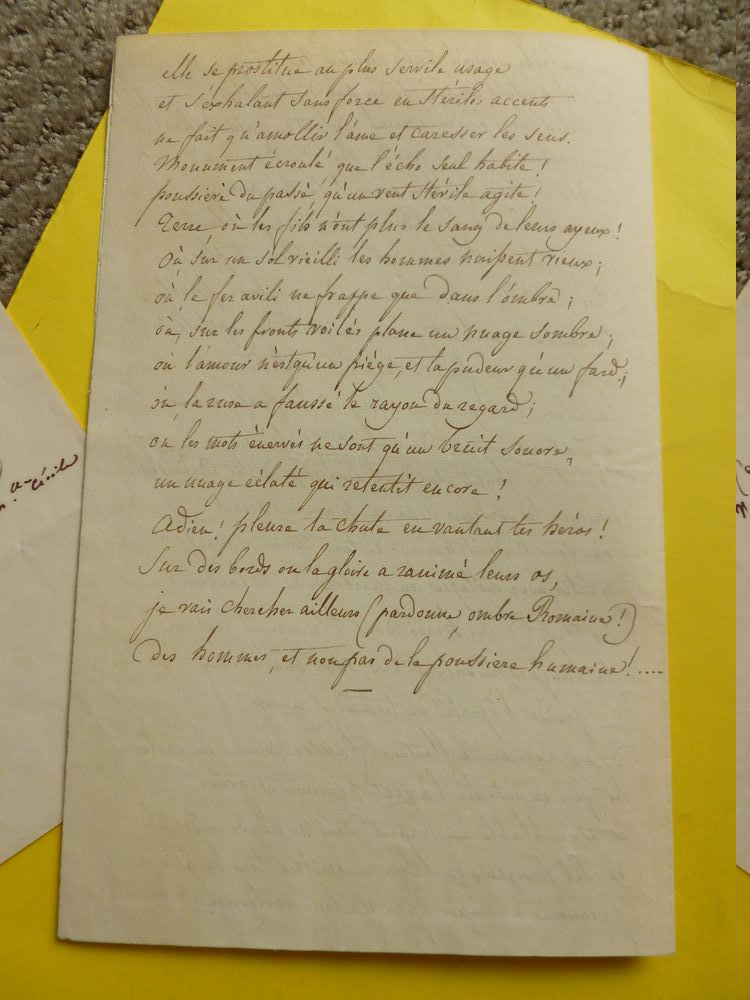 elle se prostitue au plus servile usage
et s'exhalant sans force en stériles accents
ne fait qu'amollir l'âme et caresser les sens.
Monument écroulé, que l'écho seul habite!
poussière du passé qu'un vent stérile agite!
Terre où les fils n'ont plus le sang de leurs ayeux!
Où, sur un sol vieilli les hommes naissent vieux;
où le fer avili ne frappe que dans l'ombre;
où, sur les fronts voilés plane un nuage sombre;
où l'amour n'est qu'un piége, et la pudeur qu'un fard;
où la ruse a faussé le rayon du regard;
où les mots énervés ne sont qu'un bruit sonore,
un nuage éclaté qui retentit encore!
Adieu! pleure ta chute en vantant tes héros!
Sur des bords ou la gloire a ranimé leurs os,
je vais chercher ailleurs (pardonne, ombre Romaine!)
des hommes, et non pas de la poussière humaine!.....
Cécile